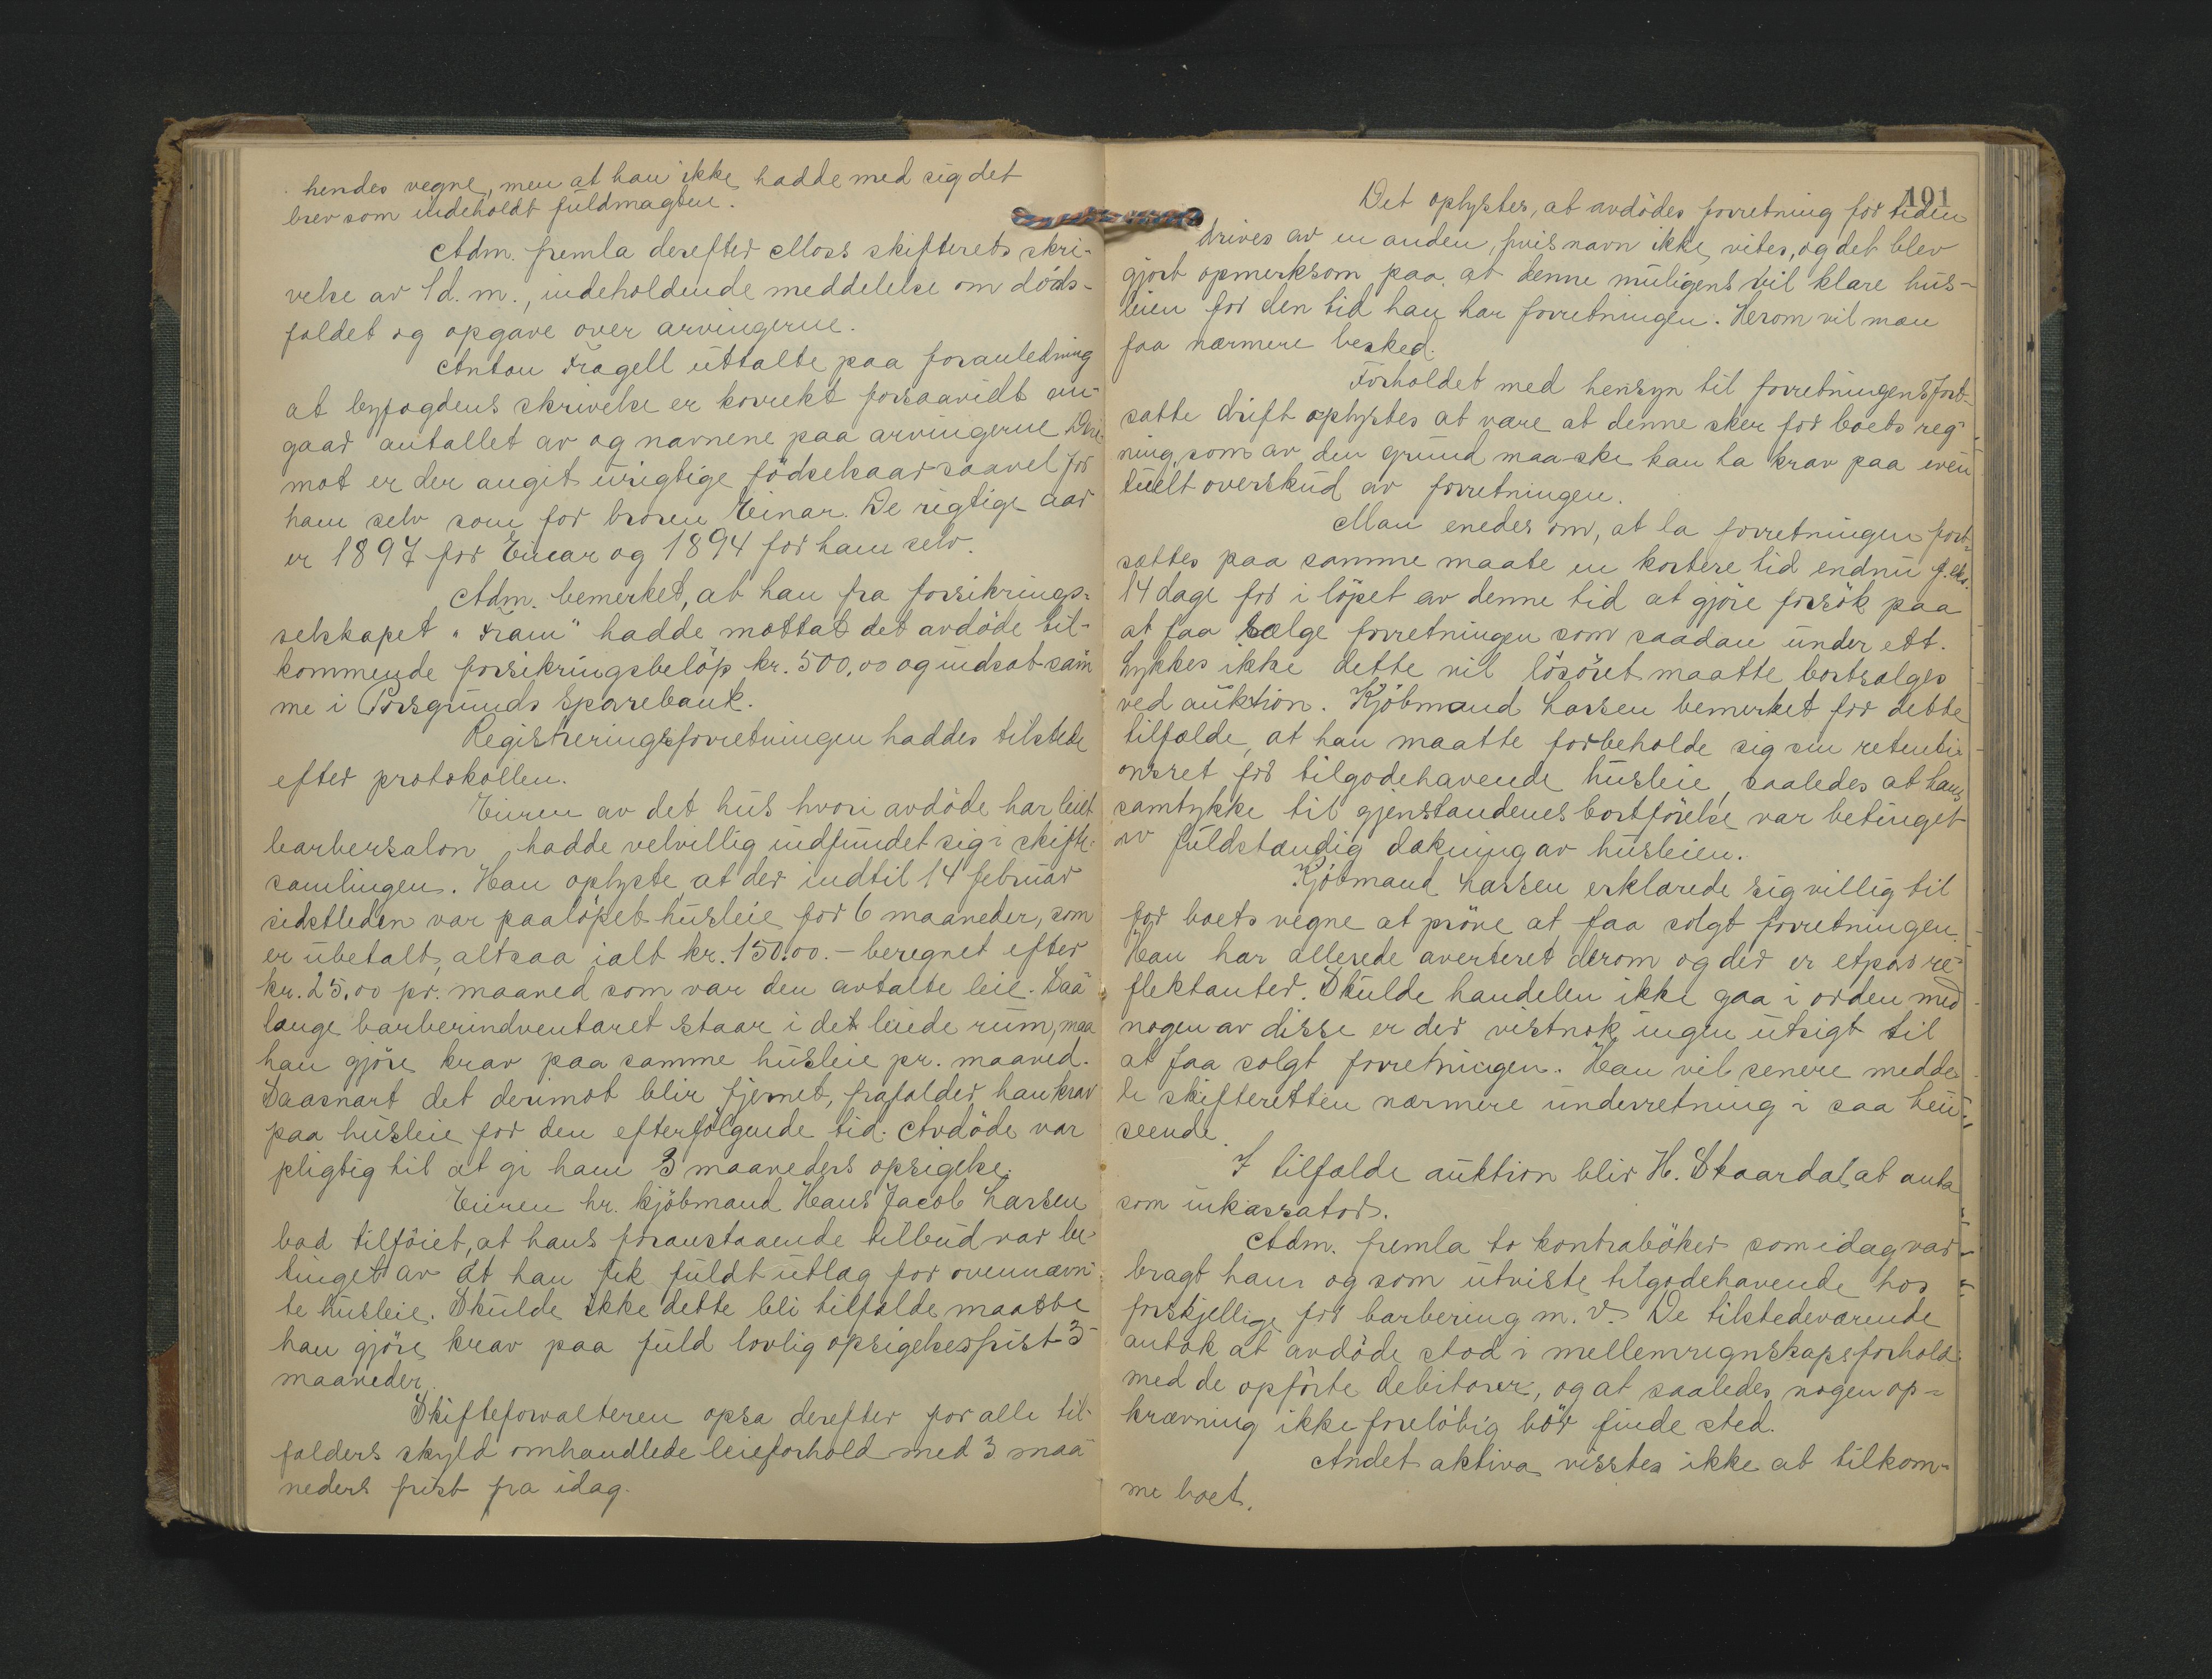 hendes vegne, men at han ikke hadde med sig det
brev som indeholdt fuldmagten.
Adm. fremla derefter Moss skifterets skri-
velse av 1 d. m., indeholdende meddelelse om døds-
faldet og opgave over arvingerne.
Anton Fragell uttalte paa foranledning
at byfogdens skrivelse er korrekt forsaavidt an-
gaar antallet av og navnene paa arvingerne. Deri-
mot er der angit urigtige fødselsaar saavel for
ham selv som for broren Einar. De rigtige aar
er 1897 for Einar og 1894 for ham selv.
Adm. bemerket, at han fra forsikrings-
selskapet "Fram" hadde mottat det avdøde til-
kommende forsikringsbeløp kr. 500,00 og indsat sam
me i Porsgrunds Sparebank.
Registreringsforretningen haddes tilstede
efter protokollen.
Eieren av det hus hvori avdøde har leiet
barbersalon, hadde velvillig indfundet sig i skifte-
samlingen. Han oplyste at der indtil 14 februar
sidstleden var paaløpet husleie for 6 maaneder, som
er ubetalt, altsaa ialt kr. 150.00.- beregnet efter
kr. 25,00 pr. maaned som var den avtalte leie. Saa
længe barberindventaret staar i det leiede rum, maa
han gjøre krav paa samme husleie pr. maaned.
Saasnart det derimot blir fjernet, frafalder han krav
paa husleie for den efterfølgende tid. Avdøde var
pligtig til at gi ham 3 maaneders opsigelse.
Eieren hr. kjøbmand Hans Jacob Larsen
bad tilføiet, at hans foranstaaende tilbud var be-
tinget av at han fik fuldt utlæg for ovennævn-
te husleie. Skulde ikke dette bli tilfælde maatte
han gjøre krav paa fuld lovlig opsigelsesfrist 3
maaneder.
Skifteforvalteren opsa derefter for alle til-
fælders skyld omhandlede leieforhold med 3 maa
neders frist fra idag.
101
Det oplystes, at avdødes forretning for tiden
drives av en anden, hvis navn ikke vites, og det blev
gjort opmerksom paa, at denne muligens vil klare hus-
leien for den tid han har forretningen. Herom vil man
faa nærmere besked.
Forholdet med hensyn til forretningens fort-
satte drift oplystes at være at denne sker for boets reg-
ning, som av den grund maaske kan ha krav paa even
tuelt overskud av forretningen.
Man enedes om, at la forretningen fort-
sættes paa samme maate en kortere tid endnu f. eks.
14 dage for i løpet av denne tid at gjøre forsøk paa
at faa sælge forretningen som saadan under ett.
Lykkes ikke dette vil løsøret maatte bortsælges
ved auktion. Kjøbmand Larsen bemerket for dette
tilfælde, at han maatte forbeholde sig sin retenti-
onsret for tilgodehavende husleie, saaledes at hans
samtykke til gjenstandenes bortførelse var betinget
av fuldstændig dækning av husleien.
Kjøbmand Larsen erklærede sig villig til
for boets vegne at prøve at faa solgt forretningen.
Han har allerede averteret derom og der er et par re-
flektanter. Skulde handelen ikke gaa i orden med
nogen av disse er der vistnok ingen utsigt til
at faa solgt forretningen. Han vil senere medde-
le skifteretten nærmere underretning i saa hen-
seende.
I tilfælde auktion blir H. Skaardal at anta
som inkassator.
Adm. fremla to kontrabøker som idag var
bragt ham og som utviste tilgodehavende hos
forskjellige for barbering m. v. De tilstedeværende
antok at avdøde stod i mellemregnskapsforhold
med de opførte debitorer, og at saaledes nogen op-
krævning ikke foreløbig bør finde sted.
Andet aktiva visstes ikke at tilkom-
me boet.